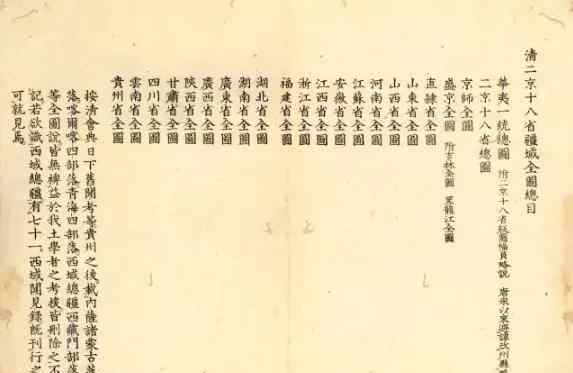 清二京十八省疆域全圖總目
華夷一統總圖 附二京十八省疆幅員略說 唐宋以來避諱改州縣
二京十八省總圖
京師全圖
盛京全圖 附吉林全圖 黑龍江全圖
直隸省全圖
山東省全圖
山西省全圖
河南省全圖
江蘇省全圖
安徽省全圖
江西省全圖
浙江省全圖
福建省全圖
湖北省全圖
湖南省全圖
廣東省全圖
廣西省全圖
陝西省全圖
甘肅省全圖
四川省全圖
雲南省全圖
貴州省全圖
按清會典日下舊聞考等貴州之後載內薩諸蒙古
落喀爾喀四部落青海四部落西域總疆西藏門部落
等全圖說皆無裨益於我土學者之考據皆刪除之不
記若欲識西域總疆有七十一西域聞見錄既刊行之
可就見焉